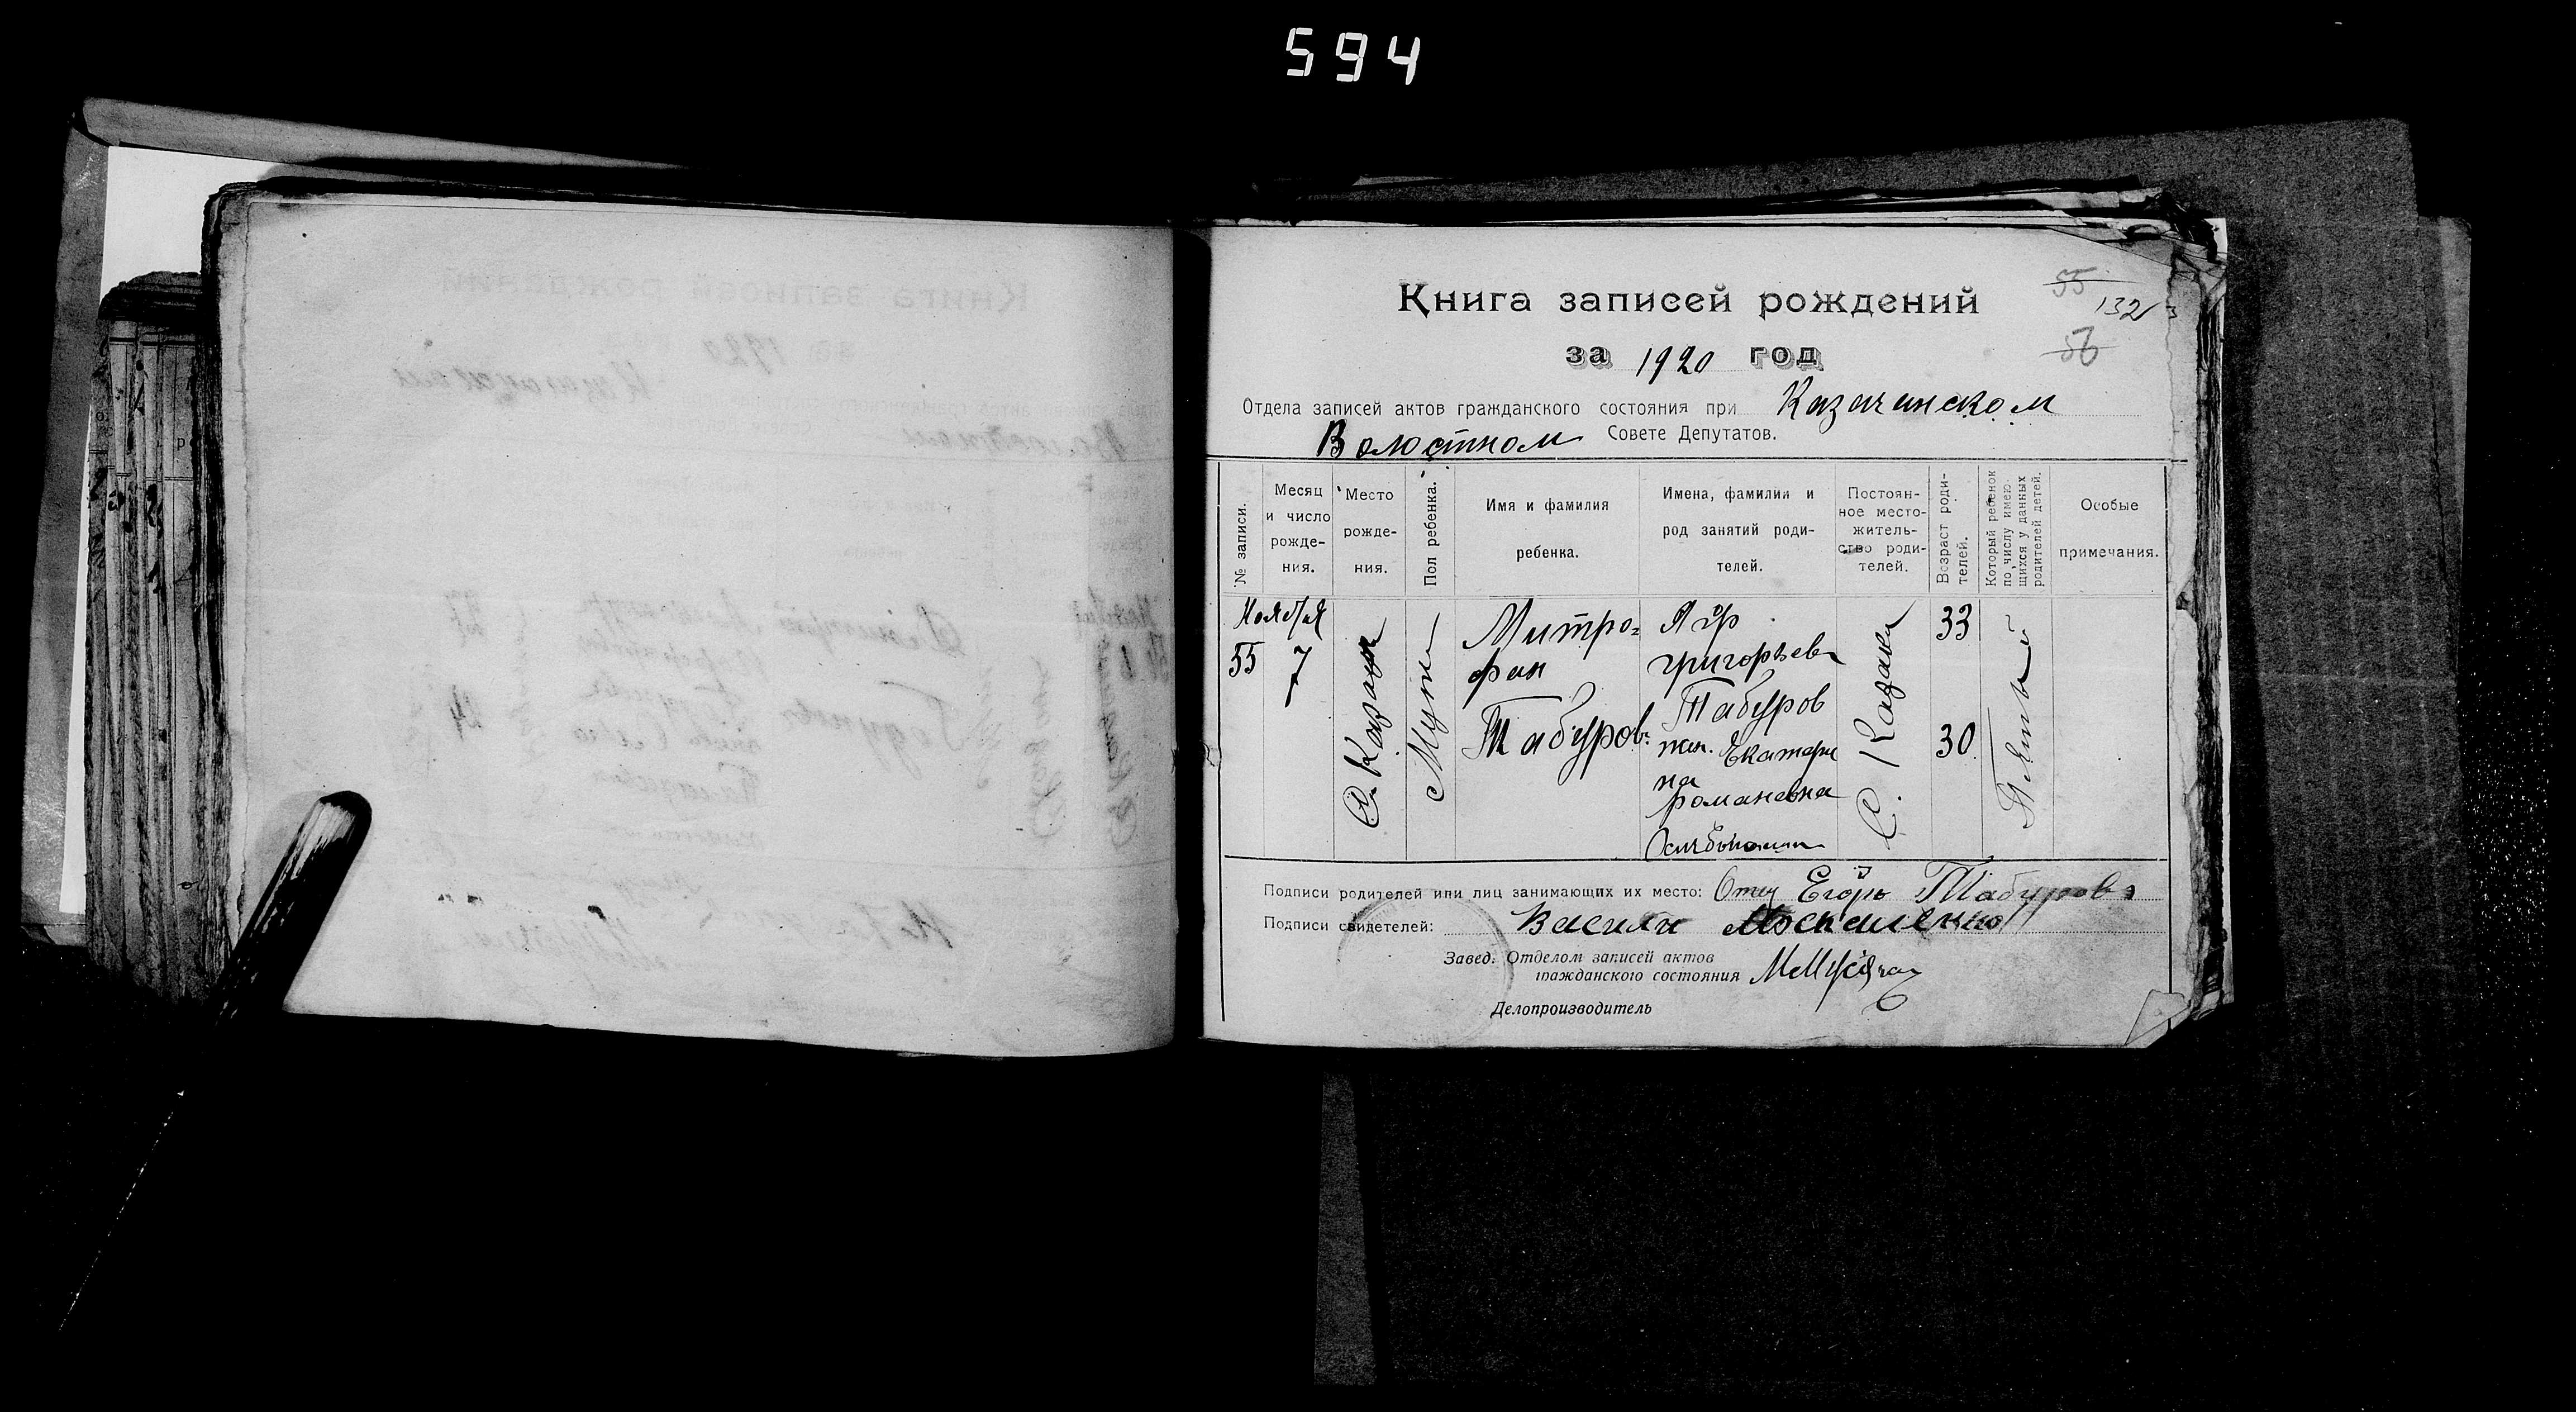 594
Книга записей рождений
55
132
56
за 1920 год
Отдела записей актов гражданского состояния при Казачанском
Волостном Совете Депутатов.
№ записи.
Месяц и число рожде- ния.
Место рожде- ния.
Пол ребенка.
Имя и фамилия ребенка.
Имена, фамилии и род занятий роди- телей.
Постоян- ное место- житель- ство роди- телей.
Возраст роди- телей.
Который ребенок по числу имею- щихся у данных родителей детей.
Особые примечания.
Ноября
55
7
С. Казачки
Муж
Митро=
фан
Табуров
григорьев
Табуров
жен. Екатери
на
романовна
С. Казачки
33
30
Пятый
Подписи родителей или лиц занимающих их место: Отец Егоръ Табуровъ
Подписи свидетелей: Василий
Завед. Отделом записей актов
гражданского состояния
Делопроизводитель